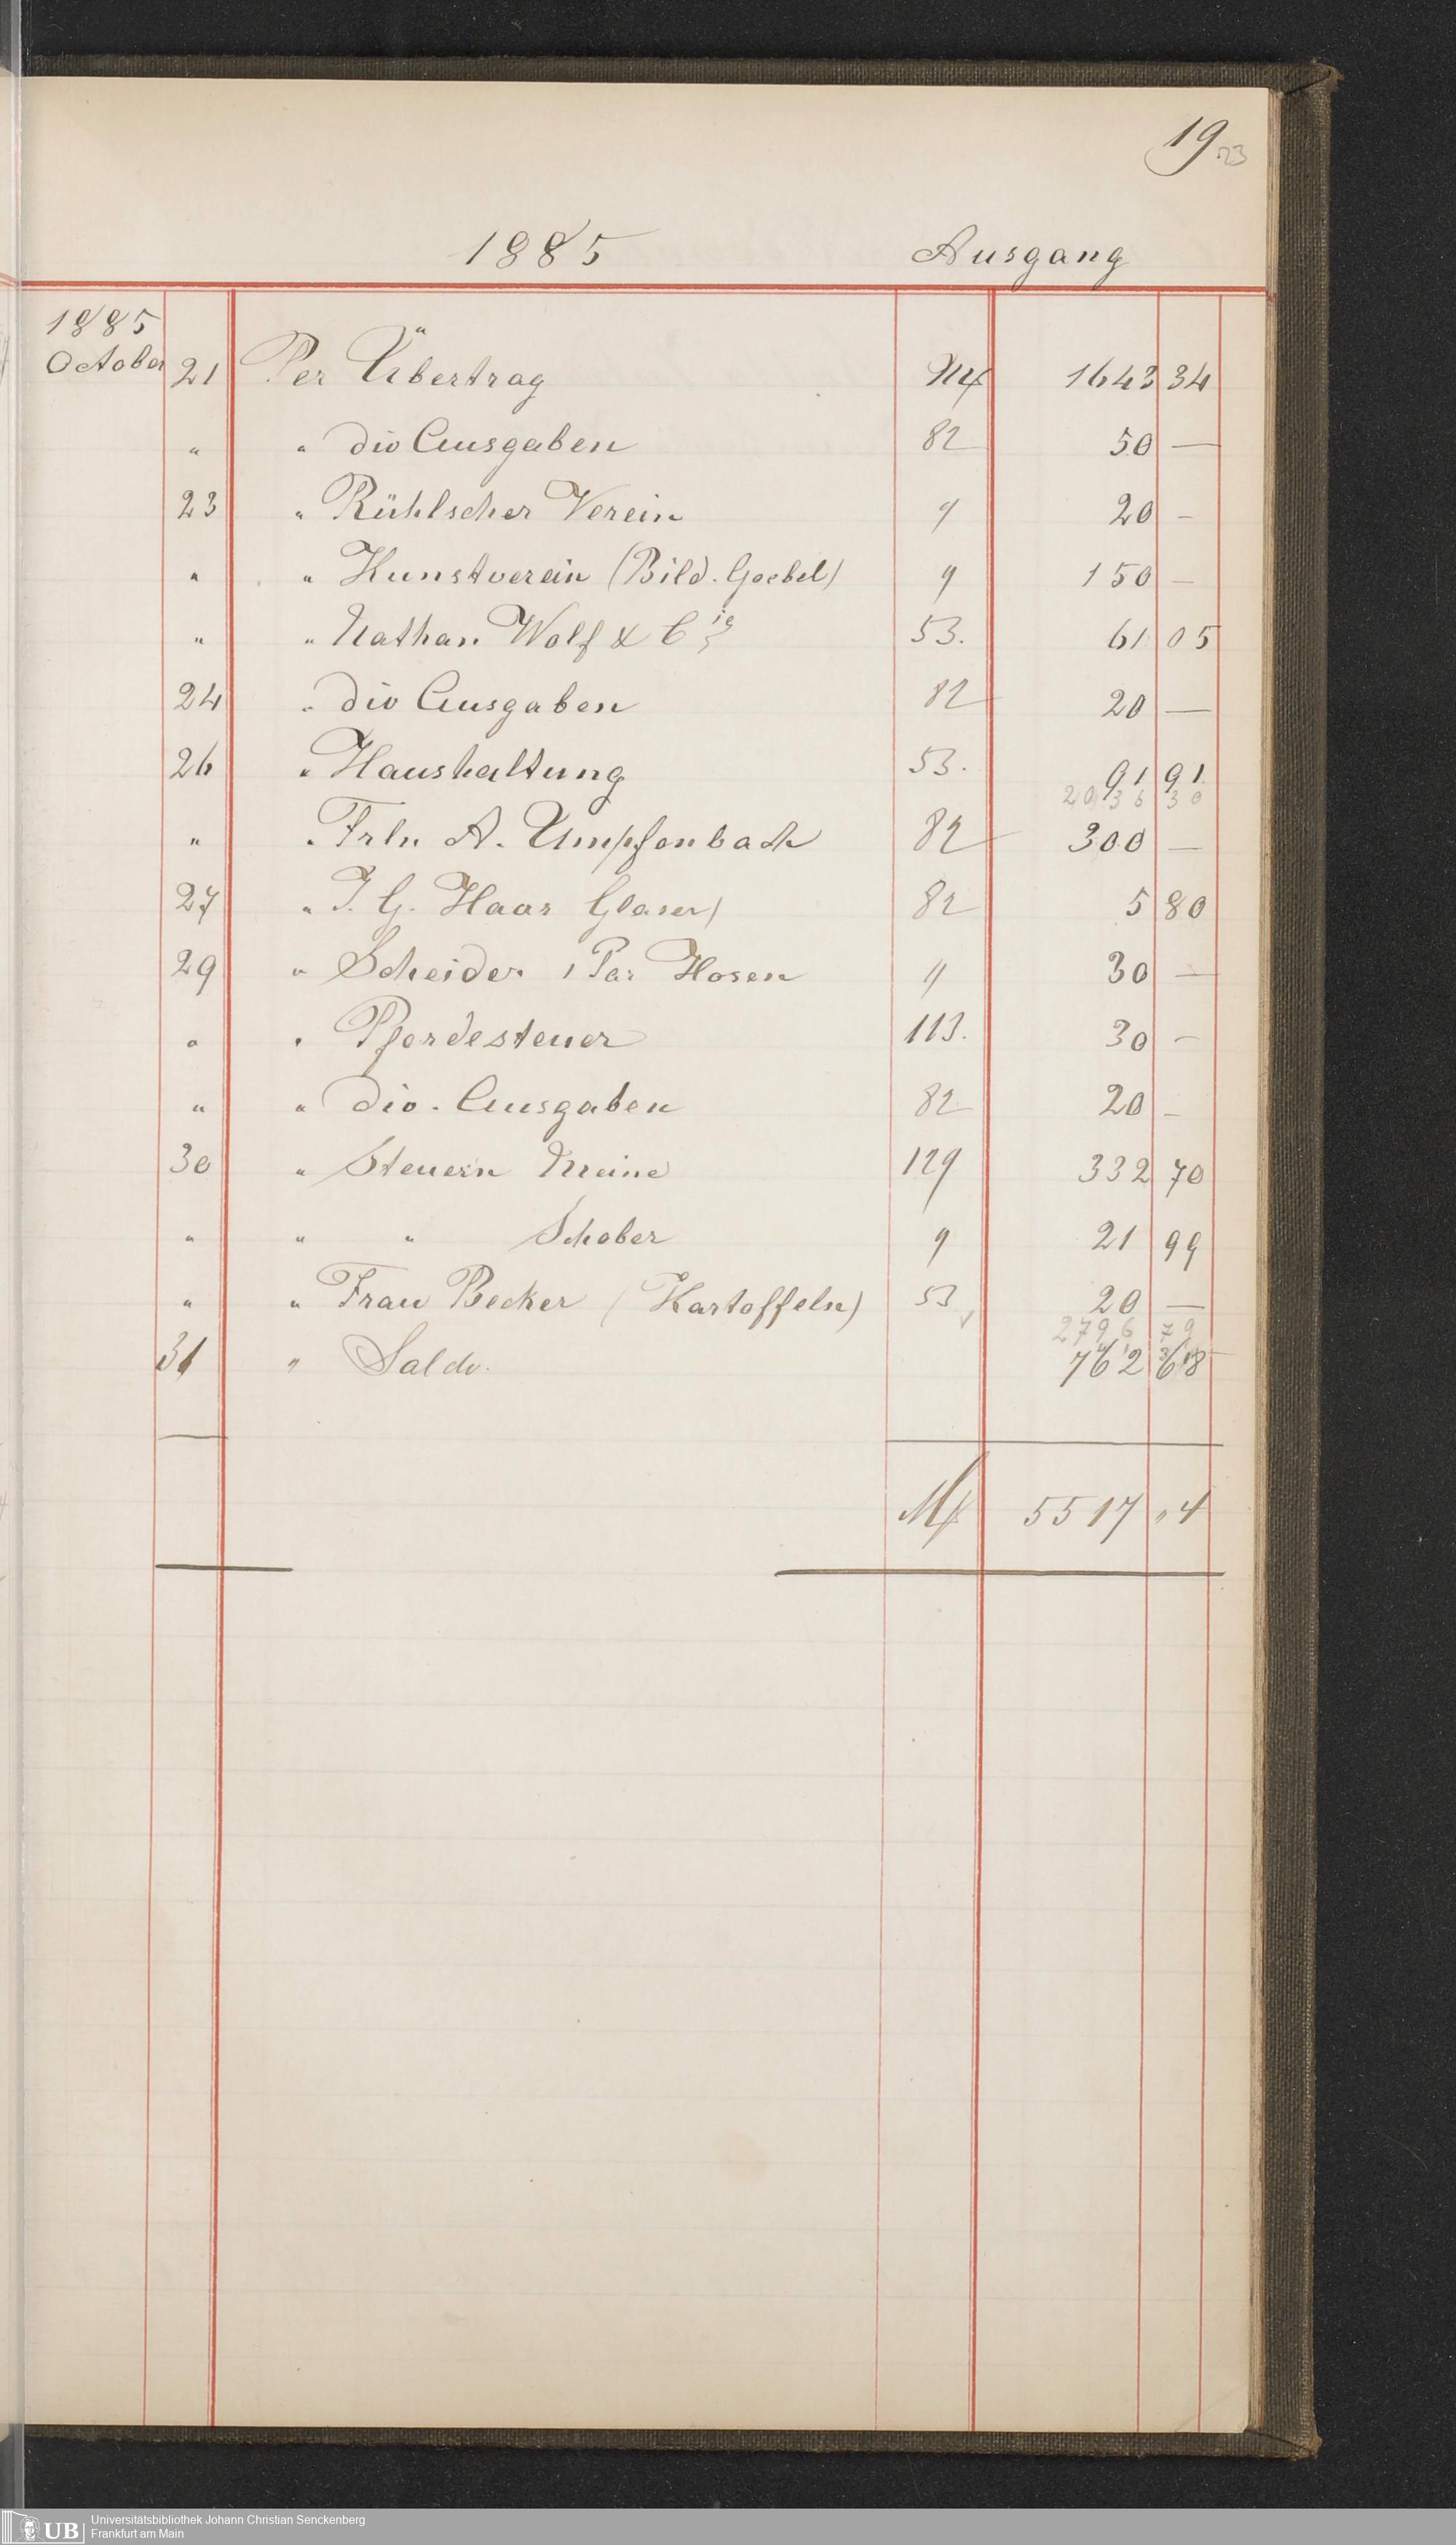 19
23
1885 Ausgang
1885
October 21 Per Übertrag M 1643 34
" " div Ausgaben 82 50 —
23 " Rühlscher Verein 9 20 -
" " Kunstverein (Bild. Goebel) 9 150 -
" " Nathan Wolf & Cie 53. 61 05
24 " div Ausgaben 82 20 —
26 " Haushaltung 53. 91 91
2036 30
" " Frln. A. Umpfenbach 82 300 —
27 " J. G. Haas Glaser) 82 5 80
29 " Scheider 1 Par Hosen 9 30 —
" " Pferdesteuer 113. 30 -
" " div. Ausgaben 82 20 -
30 " Steuern Meine 129 332 70
" " " Schober 9 21 99
" " Frau Becker (Kartoffeln) 53 20 —
2796 79
31 " Saldo.
M 5517 "4
Universitätsbibliothek Johann Christian Senckenberg
Frankfurt am Main
UB